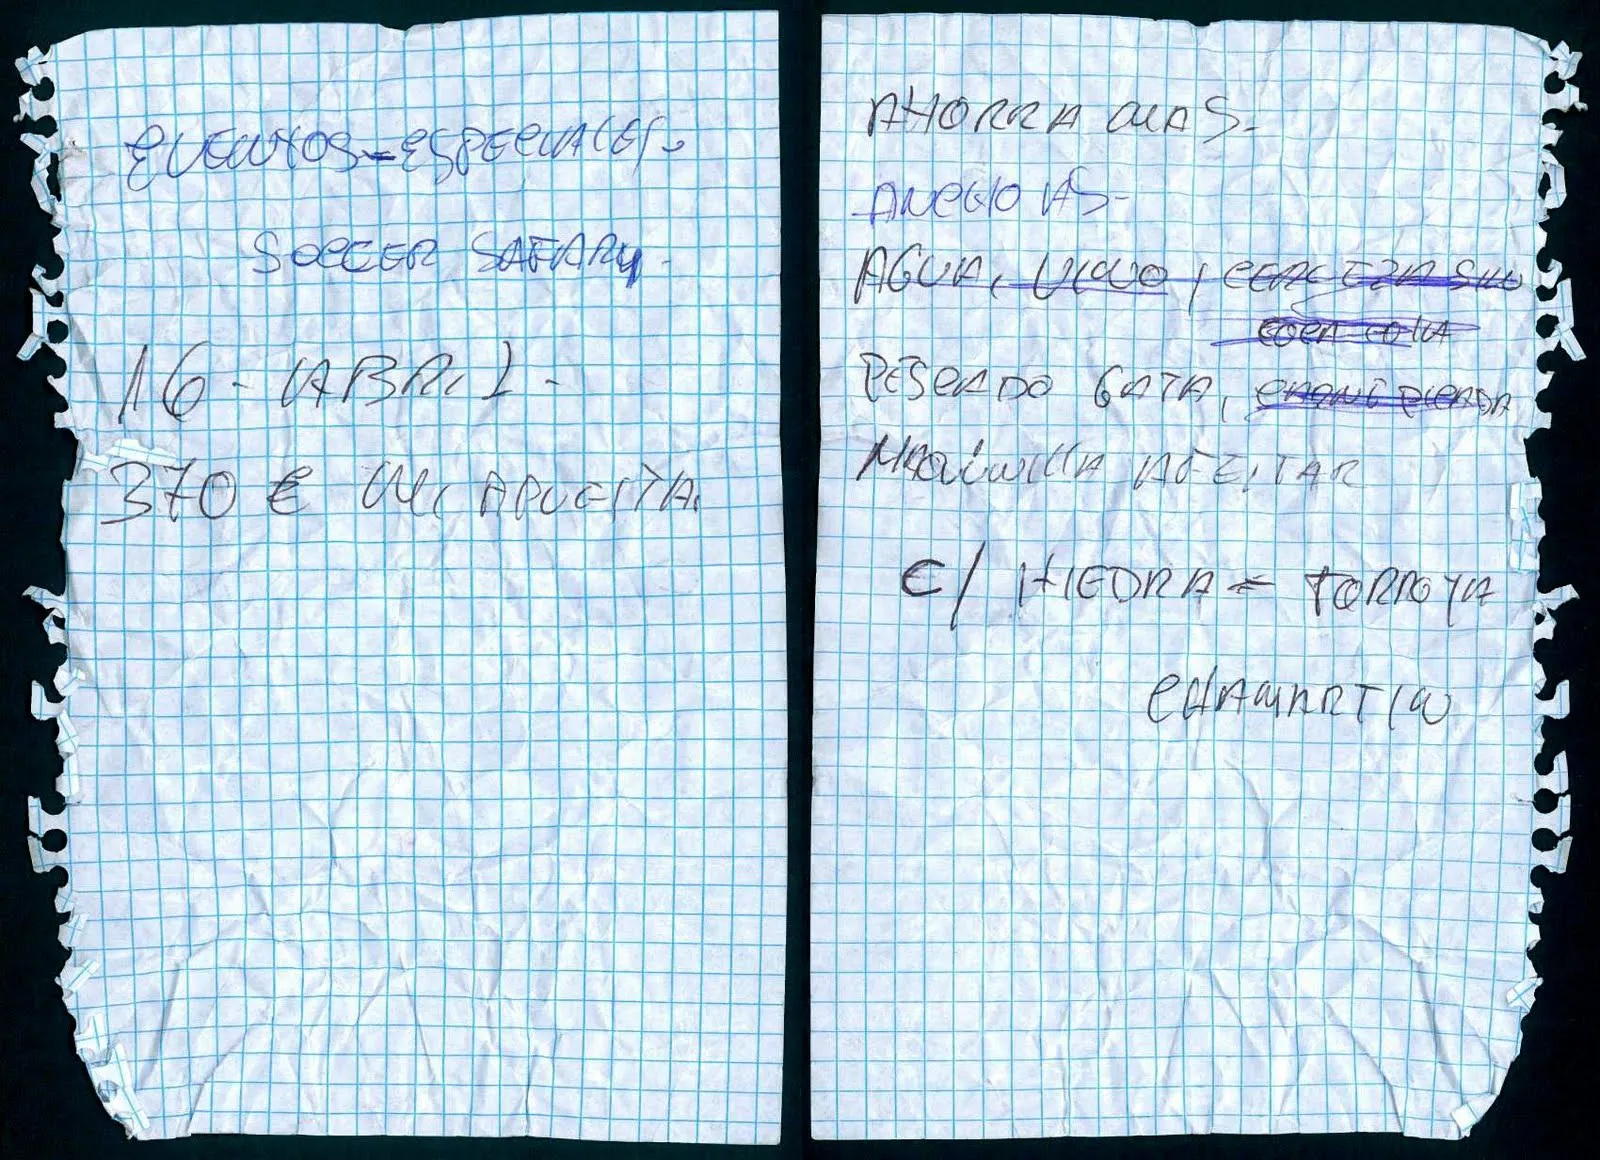 EVENTOS-ESPECIALES-
SOCCER SAFARY.
16-ABRIL-
370 € MI APUESTA.
AHORRA MAS-
AGUA, VINO, CERVEZA SIN
COCA COLA
PESCADO GATA, CARNE PICADA
MAQUINILLA AFEITAR
C/ HIEDRA = TORROJA
CHAMARTIN